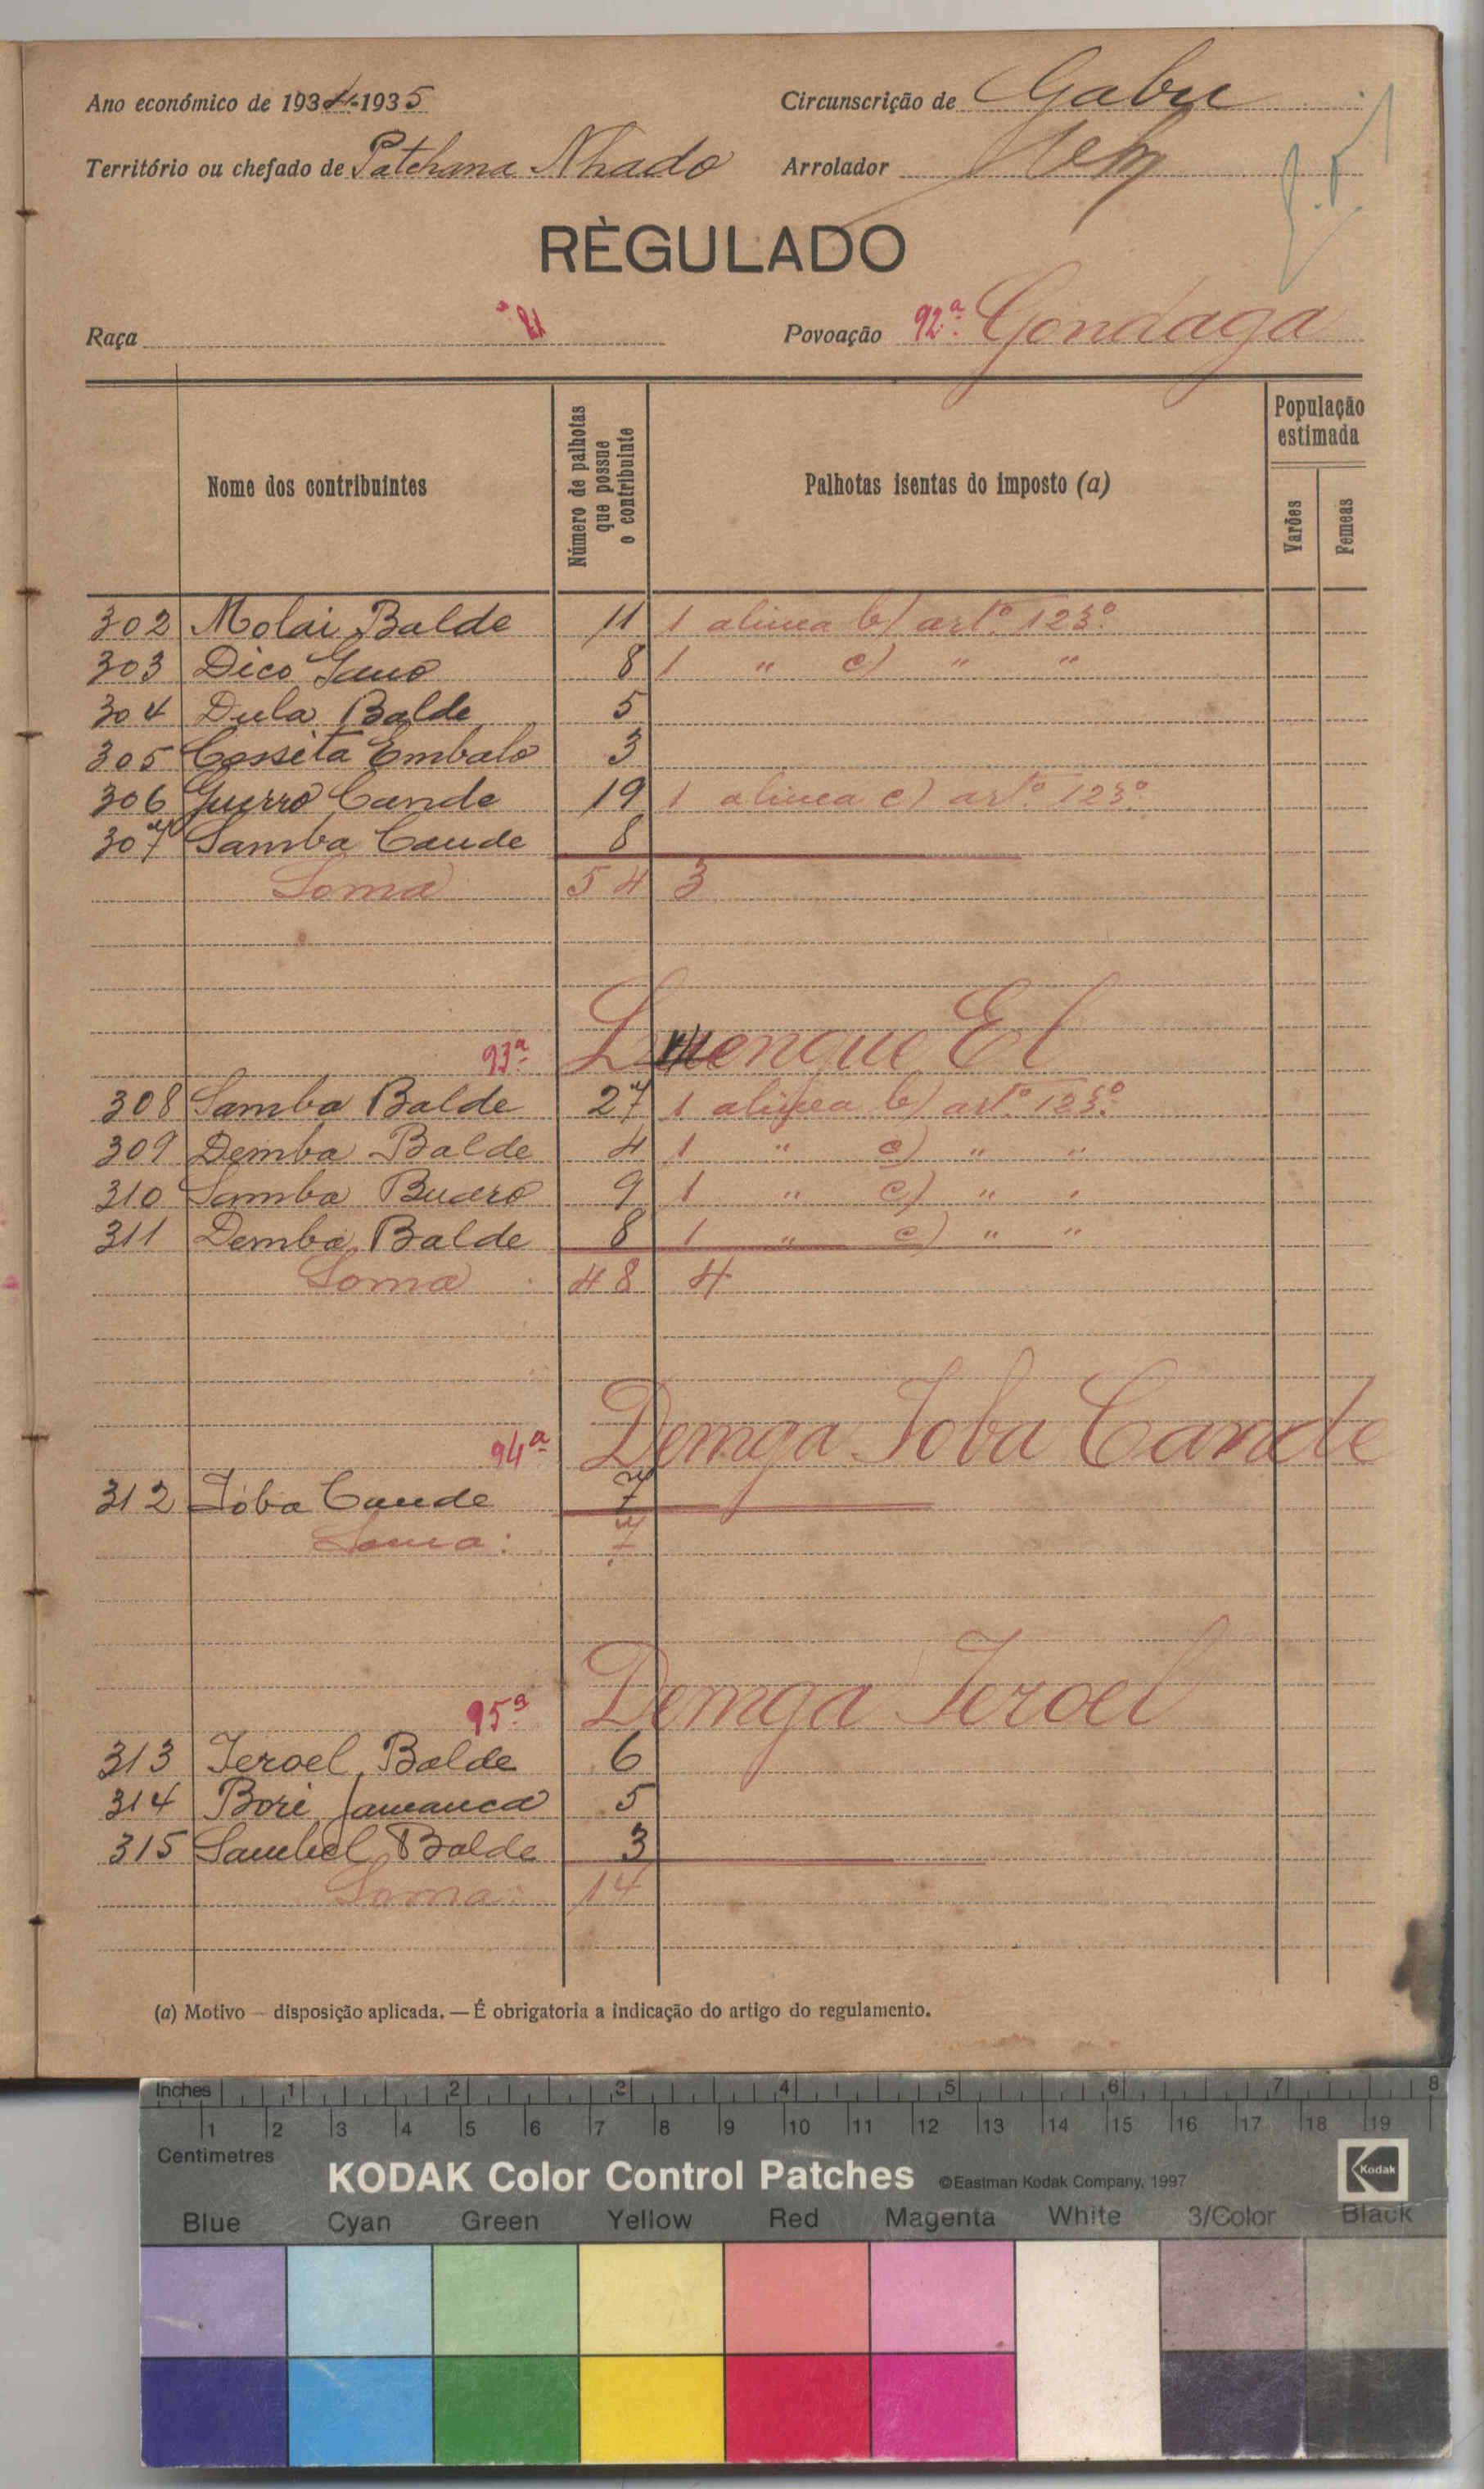 Ano económico de 1934-1935 Circunscrição de Gabu
Território ou chefado de Patchana Nhado Arrolador
RÈGULADO
Raça Povoação 92ª Gondaga
Nome dos contribuintes
Número de palhotas que possue o contribuinte
Palhotas isentas do imposto (a)
População estimada
Varões
Femeas
302 Molai Balde 11 1 alinea b) artº 123º
303 Dico Gano 8 1 " c) " "
304 Dula Balde 5
305 Cosseita Embalo 3
306 Guerro Cande 19 1 alinea c) artº 123º
307 Samba Cande 8
Soma 54 3
93ª El
308 Samba Balde 27 1 alinea b) artº 123º
309 Demba Balde 4 1 " c) " "
310 Samba Buaro 9 1 " c) " "
311 Demba Balde 8 1 " c) " "
Soma 48 4
94ª Demga Joba Cande
312 Jóba Cande 7
Soma: 7
95ª Demga Jeroel
313 Jeroel Balde 6
314 Bori Jamanca 5
315 Sambel Balde 3
Soma: 14
(a) Motivo — disposição aplicada. — É obrigatoria a indicação do artigo do regulamento.
Inches 1 2 3 4 5 6 7 8
1 2 3 4 5 6 7 8 9 10 11 12 13 14 15 16 17 18 19
Centimetres
KODAK Color Control Patches ©Eastman Kodak Company, 1997 Kodak
Blue Cyan Green Yellow Red Magenta White 3/Color Black